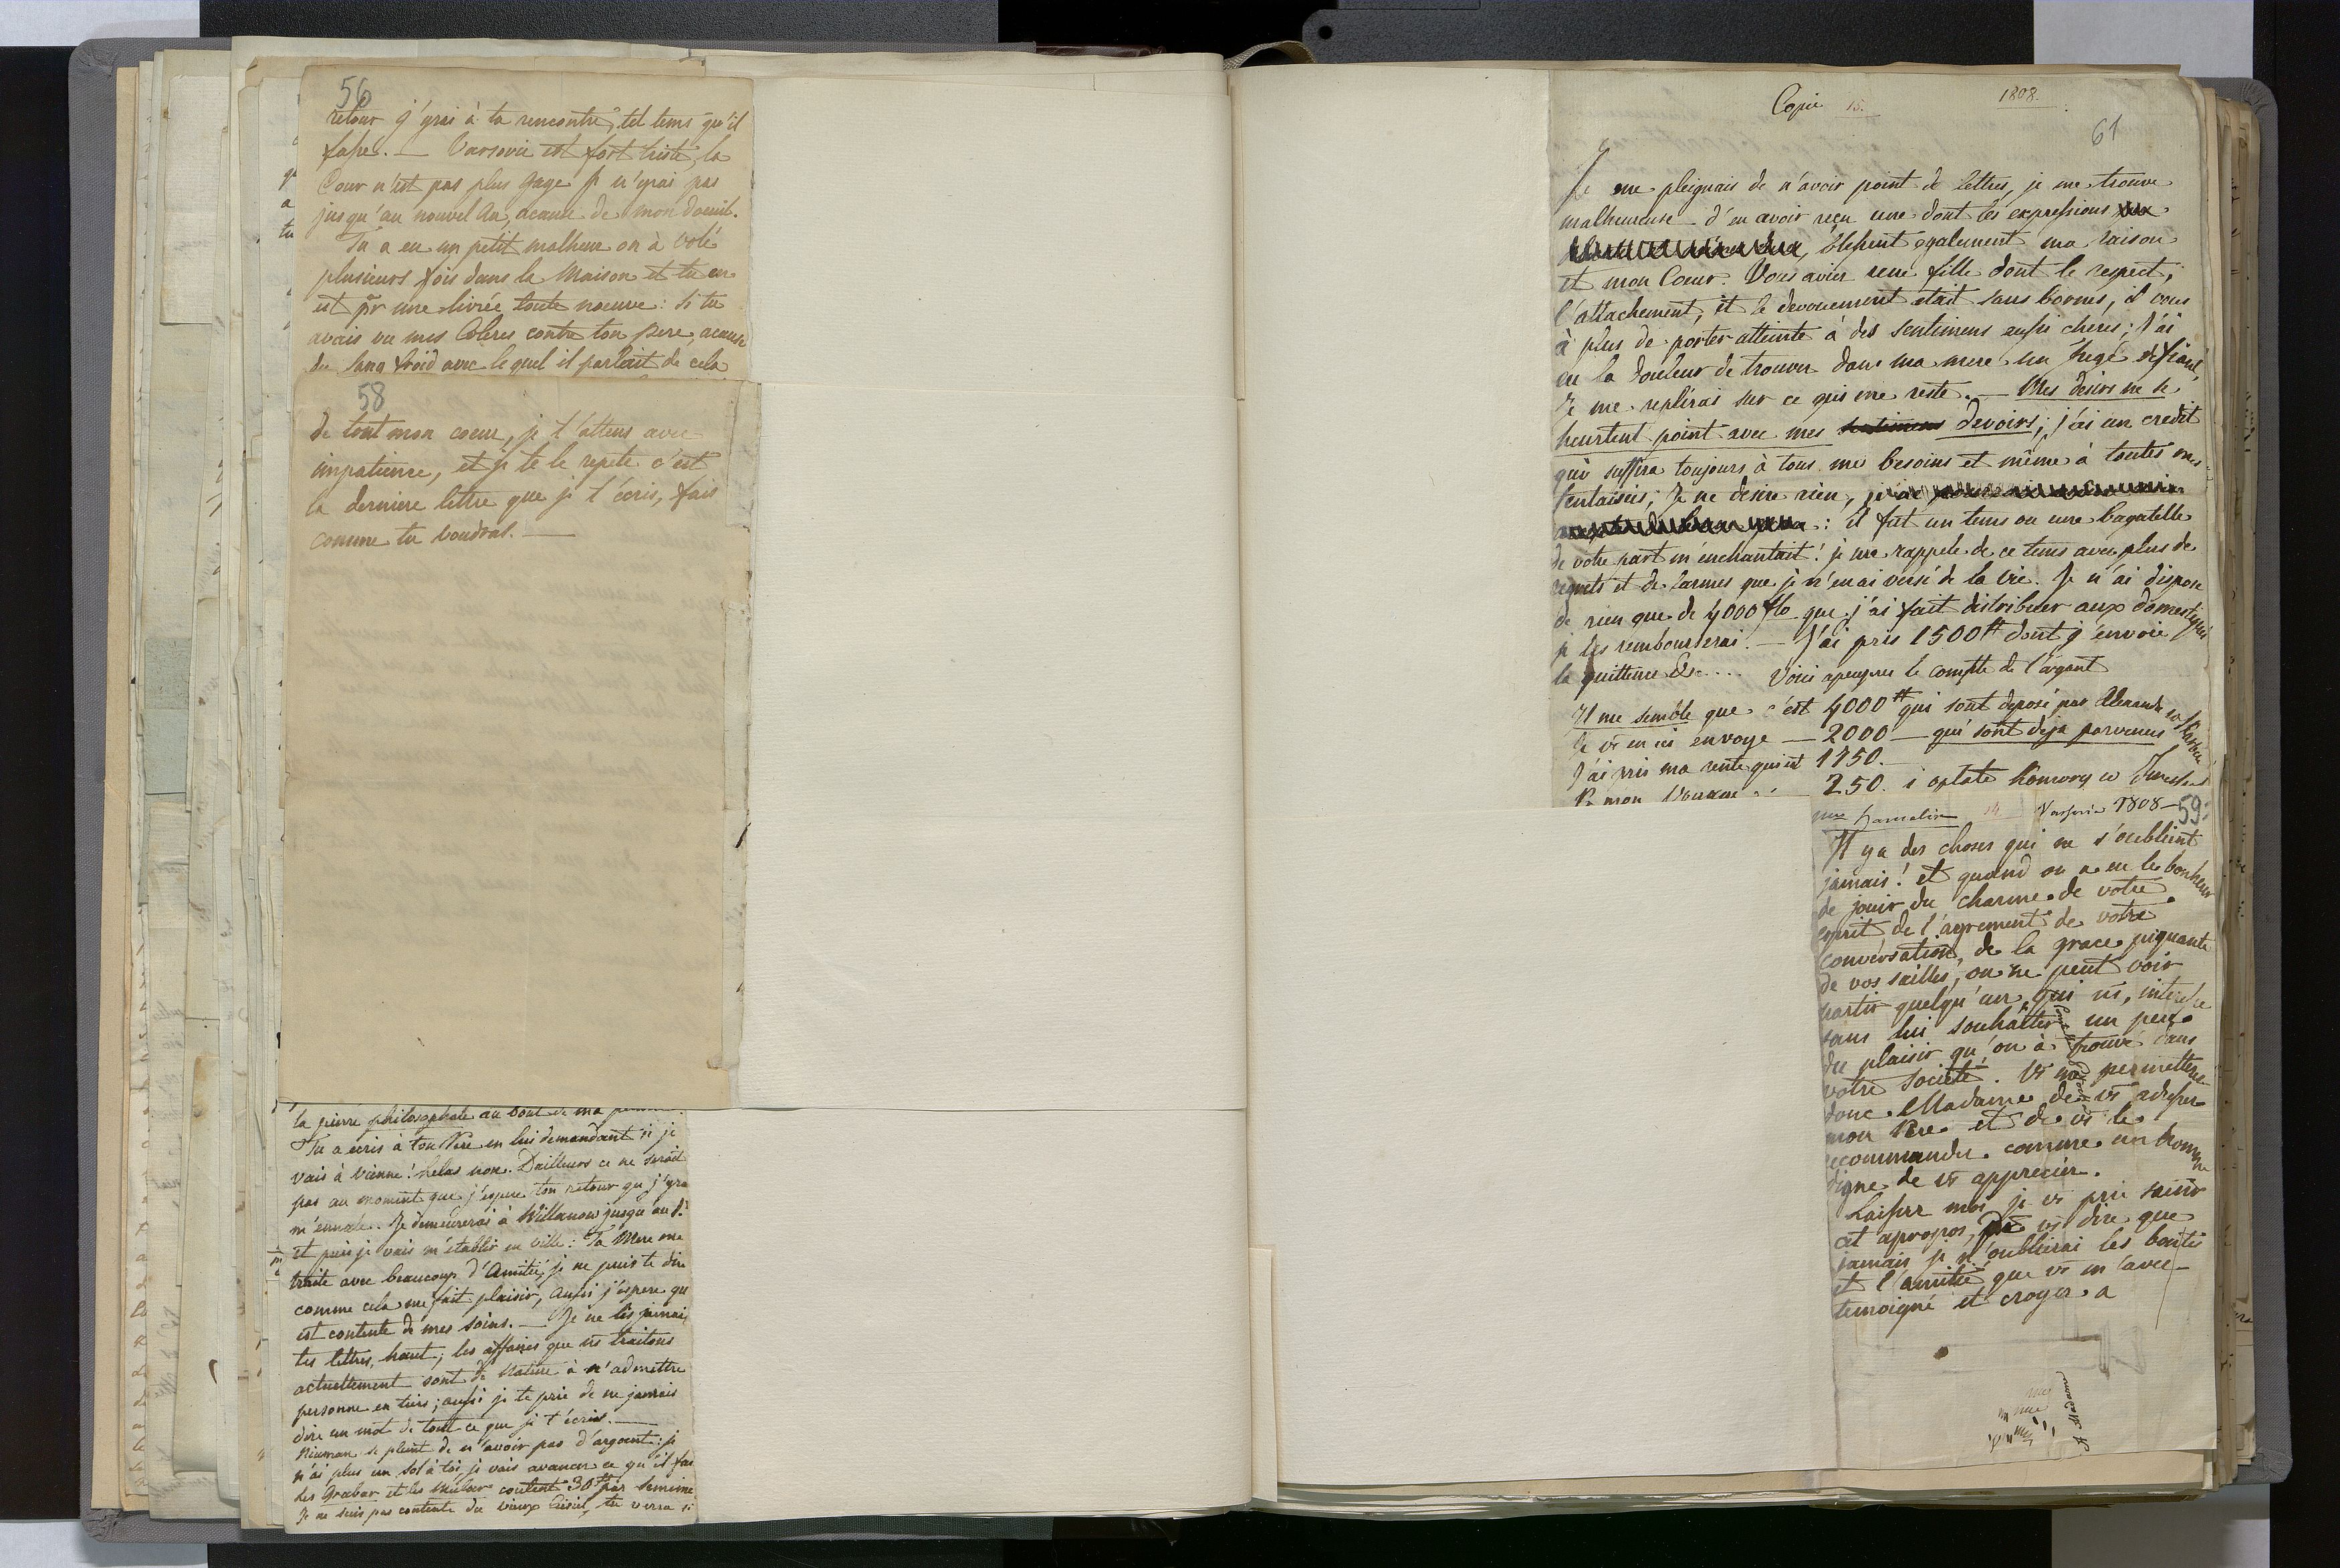 56
retour j'yrai à ta rencontre, tel tems qu'il
fasse. — Varsovie est fort triste, la
Cour n'est pas plus gaye je n'yrai pas
jusqu'au nouvel An, acause de mon dueuil.
Tu a eu un petit malheur on à volé
plusieurs fois dans la Maison et tu en
est pr une livrée toute noeuve: si tu
avais vu mes Coleres contre ton pere, acause
du sang froid avec le quel il parlait de cela
58
de tout mon coeur, je t'attens avec
impatience, et je te le repete c'est
la derniere lettre que je t'écris, fais
comme tu voudras. —
la pierre philosophale au bout de ma
Tu a ecris à ton Pere en lui demandant si je
vais à Vienne! helas non. Dailleurs ce ne serait
pas au moment que j'espere ton retour que j'yra
m'ennale. Je demeurerai à Willanow jusqu'au 1.r
et puis je vais m'etablir en ville: Ta Mere me
traite avec beaucoup d'Amitié, je ne puis te dire
comme cela me fait plaisir, Aussi j'espere qu
est contente de mes soins. — Je ne lis jamais
tes lettres, haut; les affaires que ns traitons
actuellement sont de Nature à n'admettre
personne en tiers; aussi je te prie de ne jamais
dire un mot de tout ce que je t'écris. —
Nieman se plaint de n'avoir pas d'argent: je
n'ai plus un sol à toi, je vais avancer ce qu'il fau
Les Grabar et les coutent 30# par semaine
Je ne suis pas contente du vieux tu verra si
Copie 15. 1808.
61
Je me pleignais de n'avoir point de lettres, je me trouve
malheureuse d'en avoir reçu une dont les expressions
blessent egalement ma raison
et mon Coeur. Vous aviez une fille dont le respect,
l'attachement, et le devouement etait sans bornes, il vous
à plus de porter atteinte à des sentimens aussi cheris; J'ai
eu la douleur de trouver dans ma mere un Juge
Je me replirai sur ce qui me reste. — Mes desirs ne se
heurtent point avec mes sentimens devoirs; j'ai un credit
qui suffira toujours à tous mes besoins et même à toutes mes
fentaisies; Je ne desire rien,
: il fut un tems ou une bagatelle
de votre part m'enchantait! je me rappele de ce tems avec plus de
regrets et de larmes que je n'en ai versé de la vie. Je n'ai disposé
de rien que de 4000 flo que j'ai fait distribuer aux domestiques
je les rembourserai. — J'ai pris 1500# dont j'envoie
la quittence &c.... Voici apeuprès le compte de l'argent
Il me semble que c'est 4000# qui sont deposé par Alexandre w Skarbcu
Je vs en ai envoyé — 2000 — qui sont deja parvenus
J'ai pris ma rente qui est 1750.
250. i optate komory w
Mme Hamelin 14 Varsovie 1808 — 59.
Il y a des choses qui ne s'oublient
jamais! et quand on a eu le bonheur
de jouir du charme de votre
esprit de l'agrement de votre
conversation, de la grace piquante
de vos sailles, on ne peut voir
partir quelqu'un qui ns, interesse
sans lui souhaiter un peu
du plaisir qu'on à trouvé dans
votre societé. Vs me permettrez
donc Madame de vs adresser
mon Pere et de vs le
recommander comme un homme
digne de vs apprecier.
Laissez moi je vs prie saisir
cet apropos, de vs dire que
jamais je n'oublierai les bontés
et l'amitié que vs m'avez
temoigné et croyez a